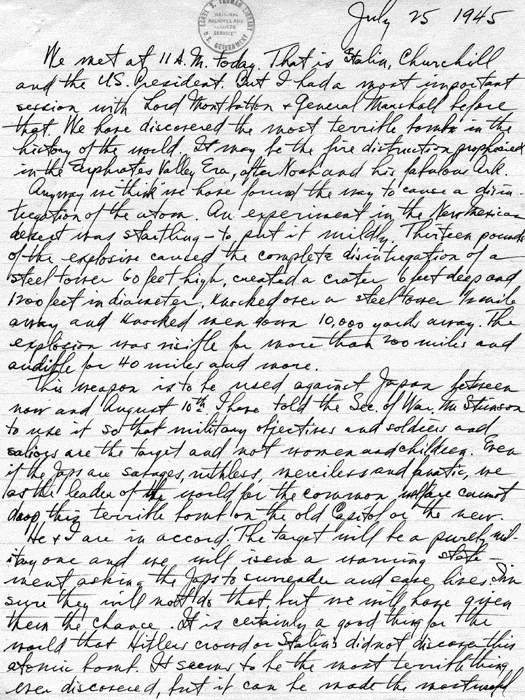 July 25 1945
We met at 11 A.M. today. That is Stalin, Churchill
and the U.S. President. But I had a most important
session with Lord Mountbatten & General Marshall before
that. We have discovered the most terrible bomb in the
history of the world. It may be the fire distruction prophesied
in the Euphrates Valley Era, after Noah and his fabulous Ark.
Anyway we think we have found the way to cause a disin-
tegration of the atom. An experiment in the New Mexican
desert was startling - to put it mildly. Thirteen pounds
of the explosive caused the complete disintegration of a
steel tower 60 feet high, created a crater 6 feet deep and
1200 feet in diameter, knocked over a steel tower 1/2 mile
away and knocked men down 10,000 yards away. The
explosion was visible for more than 200 miles and
audible for 40 miles and more.
This weapon is to be used against Japan between
now and August 10th. I have told the Sec. of War, Mr. Stimson
to use it so that military objectives and soldiers and
sailors are the target and not women and children. Even
if the Japs are savages, ruthless, merciless and fanatic, we
as the leader of the world for the common welfare cannot
drop this terrible bomb on the old Capitol or the new.
He & I are in accord. The target will be a purely mil-
itary one and we will issue a warning state-
ment asking the Japs to surrender and save lives. I'm
sure they will not do that, but we will have given
them the chance. It is certainly a good thing for the
world that Hitler's crowd or Stalin's did not discover this
atomic bomb. It seems to be the most terrible thing
ever discovered, but it can be made the most useful